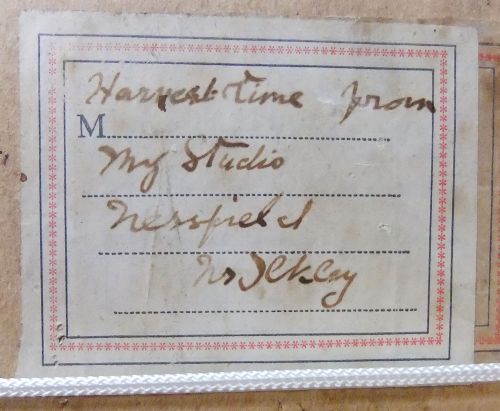 Harvest Time from
M
My Studio
Nessfield
Nr Ilkley